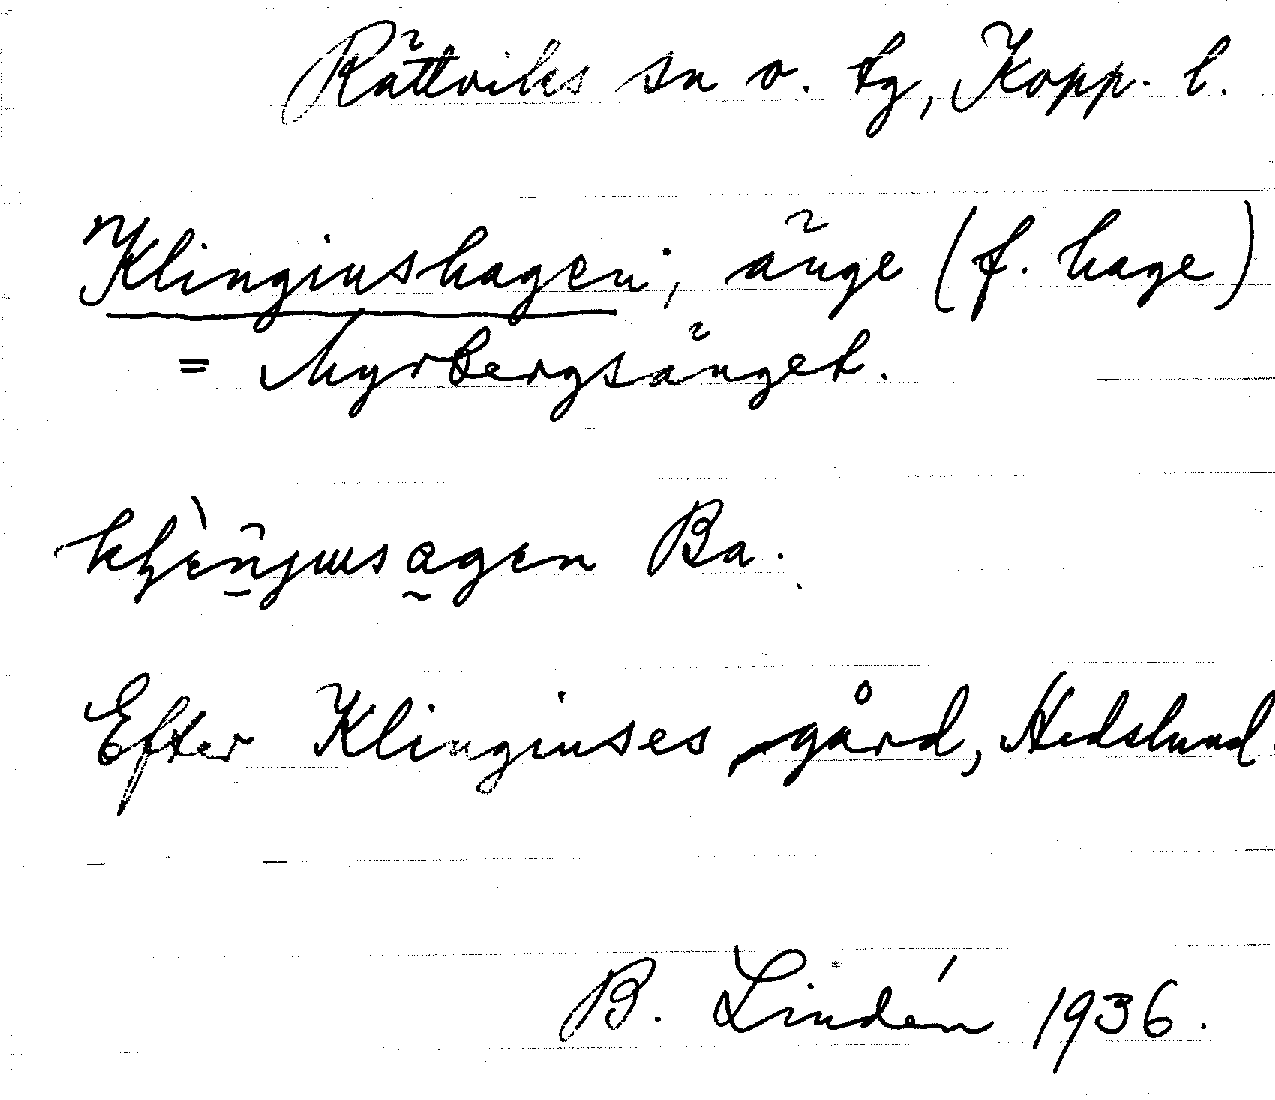 Rättviks sn o. tg, Kopp. l.
Klinginshagen; änge (f. hage)
= Myrbergsänget.
Ba.
Efter Klinginses gård, Hedslund.
B. Lindén 1936.